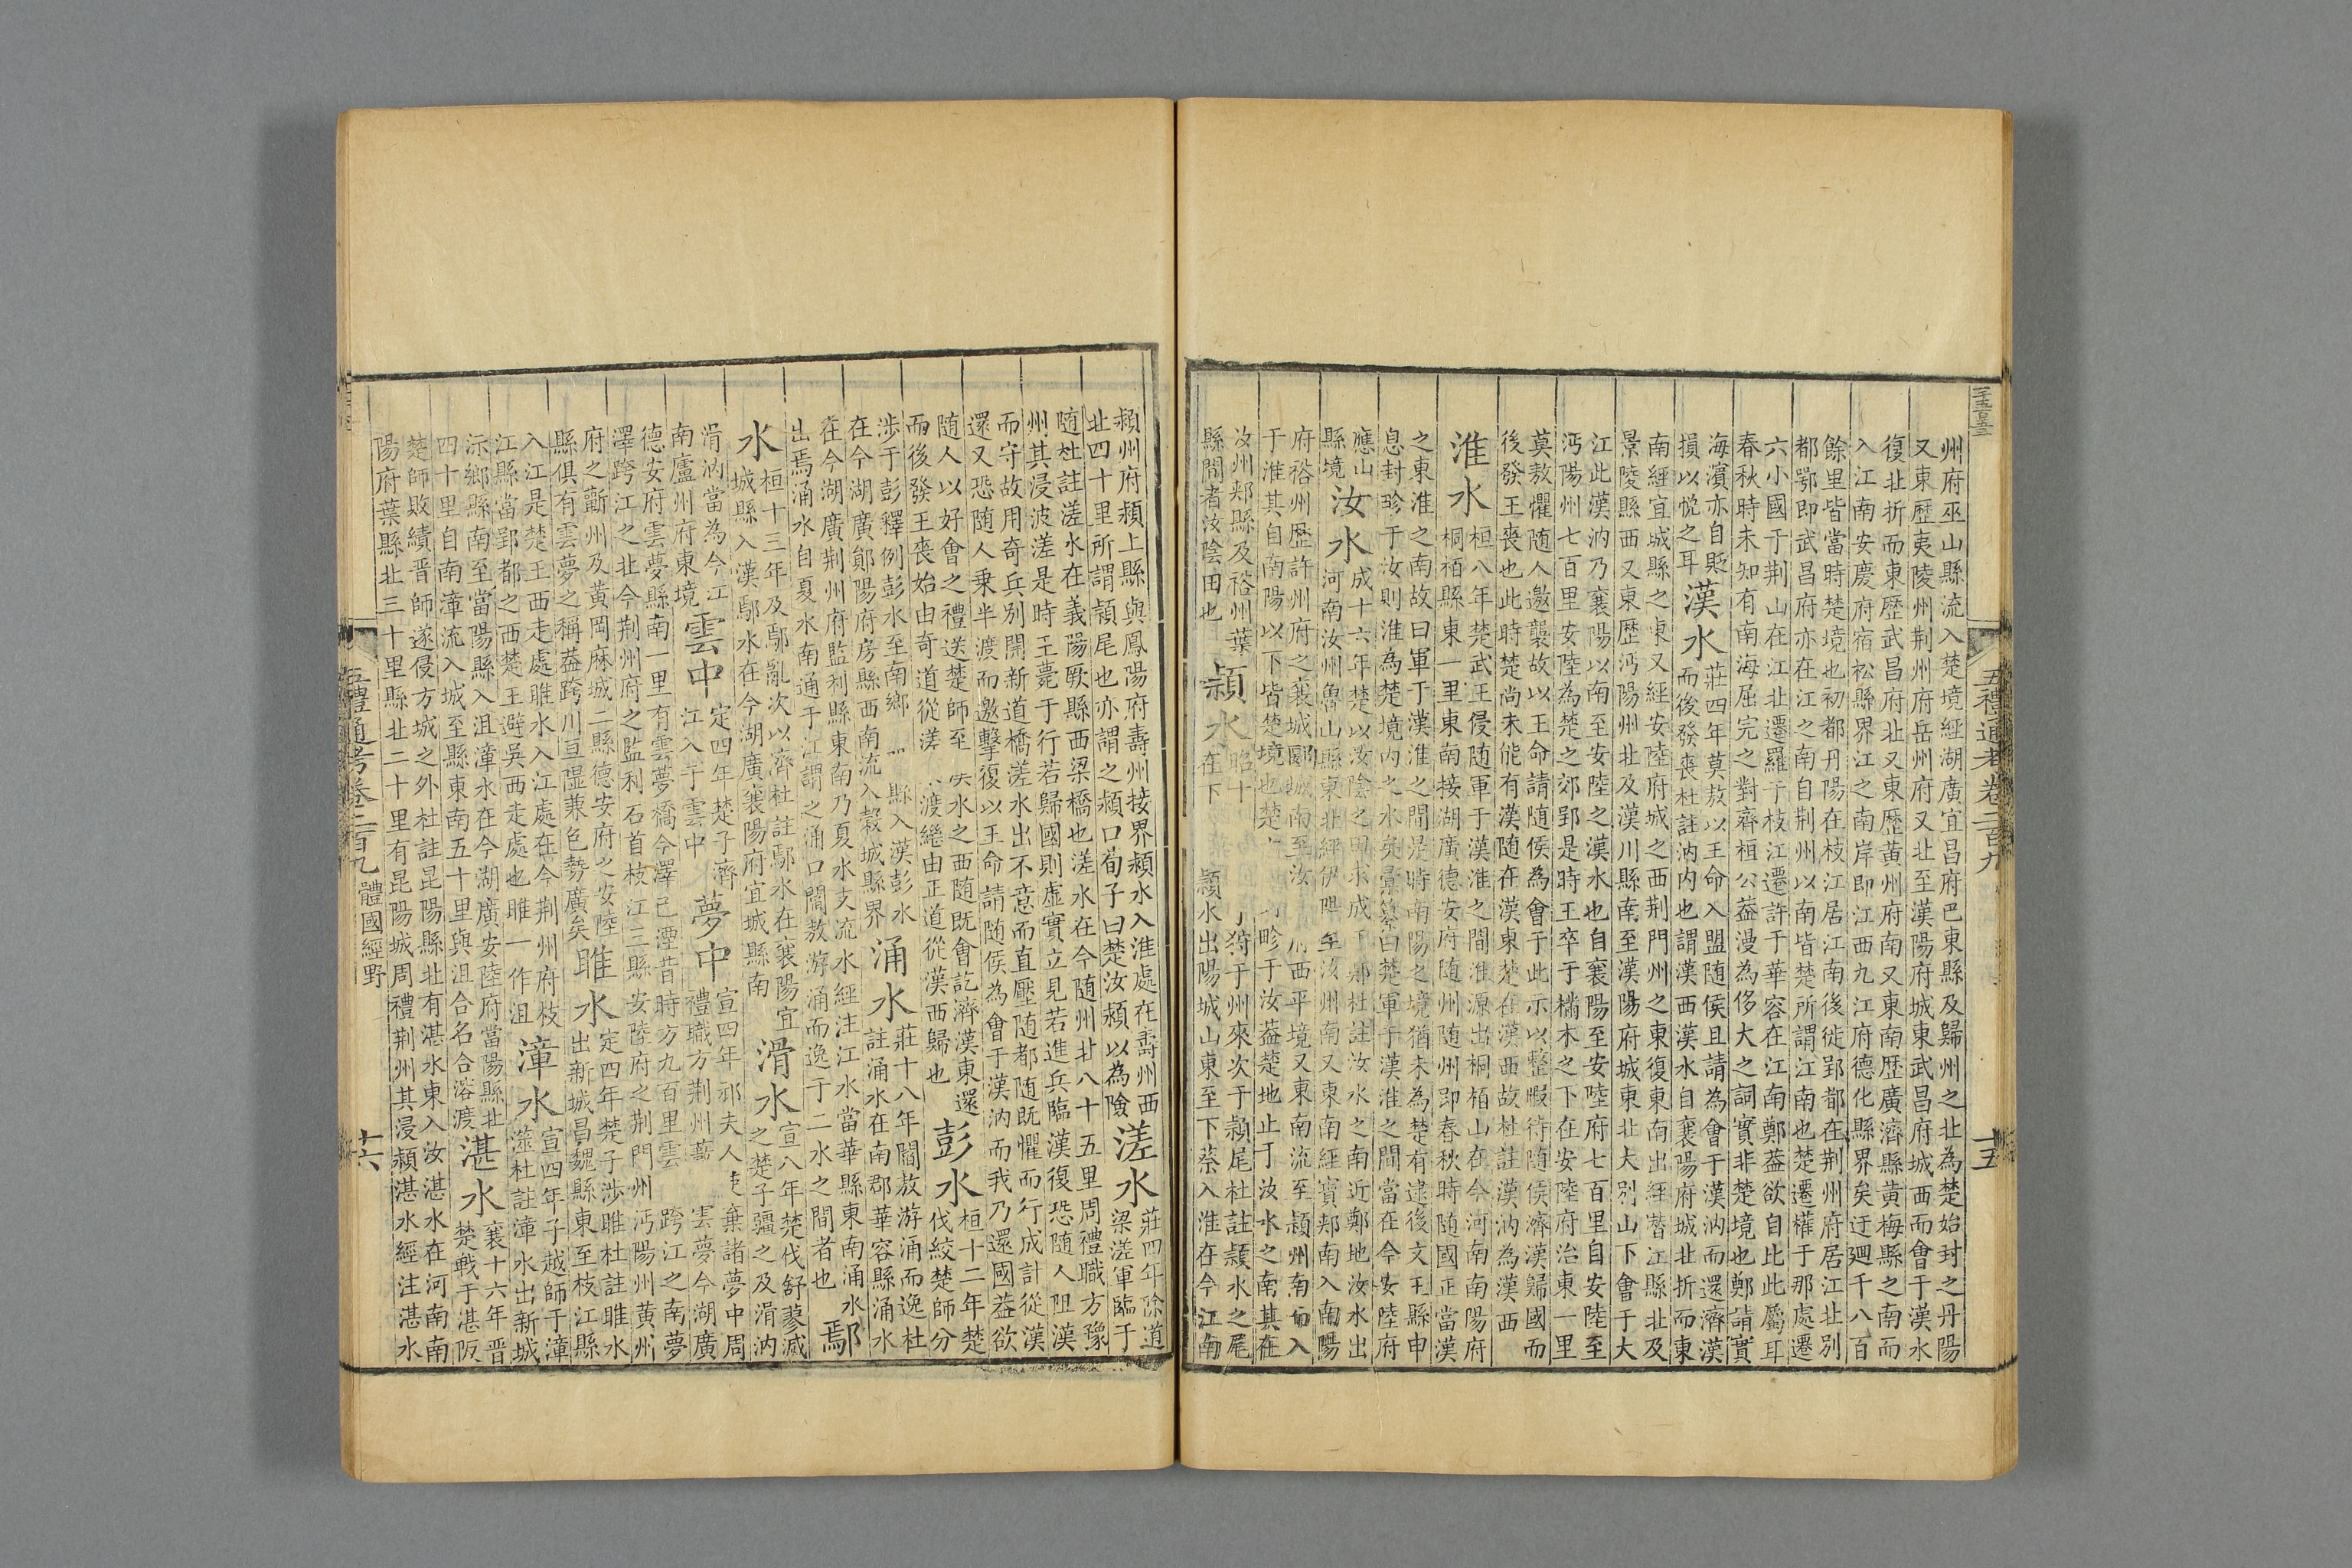 二千五百五三
五禮通考卷二百九
十五
州府巫山縣流入楚境經湖廣宜昌府巴東縣及歸州之北為楚始封之丹陽
又東歷夷陵州荆州府岳州府又北至漢陽府城東武昌府城西而會于漢水
復北折而東歷武昌府北又東歷黃州府南又東南歷廣濟縣黃梅縣之南而
入江南安慶府宿松縣界江之南岸即江西九江府德化縣界矣迂廻千八百
餘里皆當時楚境也初都丹陽在枝江居江南後徙郢都在荆州府居江北別
都鄂即武昌府亦在江之南自荆州以南皆楚所謂江南也楚遷權于那處遷
六小國于荆山在江北遷羅于枝江遷許于華容在江南鄭葢欲自比此屬耳
春秋時未知有南海屈完之對齊桓公葢漫為侈大之詞實非楚境也鄭請實
海濱亦自貶
損以悅之耳
漢水
莊四年莫敖以王命入盟随侯且請為會于漢汭而還濟漢
而後發喪杜註汭内也謂漢西漢水自襄陽府城北折而東
南經宜城縣之東又經安陸府城之西荆門州之東復東南出經潛江縣北及
景陵縣西又東歷沔陽州北及漢川縣南至漢陽府城東北大别山下會于大
江此漢汭乃襄陽以南至安陸之漢水也自襄陽至安陸府七百里自安陸至
沔陽州七百里安陸為楚之郊郢是時王卒于樠木之下在安陸府治東一里
莫敖懼随人邀襲故以王命請随侯為會于此示以整暇待随侯濟漢歸國而
後發王喪也此時楚尚未能有漢随在漢東楚在漢西故杜註漢汭為漢西
淮水
桓八年楚武王侵随軍于漢淮之間淮源出桐栢山在今河南南陽府
桐栢縣東一里東南接湖廣德安府随州界春秋時随國正當漢
之東淮之南故曰軍于漢淮之間是時南陽之境猶未為楚有逮後文王縣申
息封畛于汝則淮為楚境内之水矣彚纂曰楚軍于漢淮之間當在今安陸府
應山
縣境
汝水
成十六年楚以汝陰之田求成于鄭杜註汝水之南近鄭地汝水出
河南汝州魯山縣東北經伊陽至汝州南又東南經寶郏南入南陽
府裕州歷許州府之襄城郾城南至汝
府西平境又東南流至潁州南而入
于淮其自南陽以下皆楚境也楚
畛于汝葢楚地止于汝水之南其在
汝州郏縣及裕州葉
縣間者汝陰田也
潁水
昭十
狩于州來次于潁尾杜註潁水之尾
在下
潁水出陽城山東至下蔡入淮在今江南
潁州府潁上縣與鳳陽府壽州接界潁水入淮處在壽州西
北四十里所謂潁尾也亦謂之潁口荀子曰楚汝潁以為險
溠水
莊四年除道
梁溠軍臨于
随杜註溠水在義陽厥縣西梁橋也溠水在今随州北八十五里周禮職方豫
州其浸波溠是時王薨于行若歸國則虛實立見若進兵臨漢復恐随人阻漢
而守故用奇兵别開新道橋溠水出不意而直壓随都随既懼而行成計從漢
還又恐随人乗半渡而邀擊復以王命請随侯為會于漢汭而我乃還國葢欲
随人以好會之禮送楚師至
水之西随既會訖濟漢東還
而後發王喪始由奇道從溠
渡繼由正道從漢西歸也
彭水
桓十二年楚
伐絞楚師分
涉于彭釋例彭水至南鄉
縣入漢彭水
在今湖廣鄖陽府房縣西南流入穀城縣界
涌水
莊十八年閻敖游涌而逸杜
註涌水在南郡華容縣涌水
在今湖廣荆州府監利縣東南乃夏水支流水經注江水當華縣東南涌水
出焉涌水自夏水南通于江謂之涌口閻敖游涌而逸于二水之間者也
鄢
水
桓十三年及鄢亂次以濟杜註鄢水在襄陽宜
城縣入漢鄢水在今湖廣襄陽府宜城縣南
滑水
宣八年楚伐舒蓼滅
之楚子疆之及滑汭
滑汭當為今江
南廬州府東境
雲中
定四年楚子濟
江入于雲中
夢中
宣四年䢴夫人
棄諸夢中周
禮職方荆州藪
雲夢今湖廣
德安府雲夢縣南一里有雲夢橋今澤已湮昔時方九百里雲
跨江之南夢
澤跨江之北今荆州府之監利石首枝江三縣安陸府之荆門州沔陽州黃州
府之蘄州及黃岡麻城二縣德安府之安陸
縣俱有雲夢之稱葢跨川亘隰兼色勢廣矣
睢水
定四年楚子涉睢杜註睢水
出新城昌魏縣東至枝江縣
入江是楚王西走處睢水入江處在今荆州府枝
江縣當郢都之西楚王避吳西走處也睢一作沮
漳水
宣四年子越師于漳
澨杜註漳水出新城
沶鄉縣南至當陽縣入沮漳水在今湖廣安陸府當陽縣北
四十里自南漳流入城至縣東南五十里與沮合名合溶渡
湛水
襄十六年晋
楚戰于湛阪
楚師敗績晋師遂侵方城之外杜註昆陽縣北有湛水東入汝湛水在河南南
陽府葉縣北三十里縣北二十里有昆陽城周禮荆州其浸潁湛水經注湛水
五禮通考卷二百九
體國經野
十六